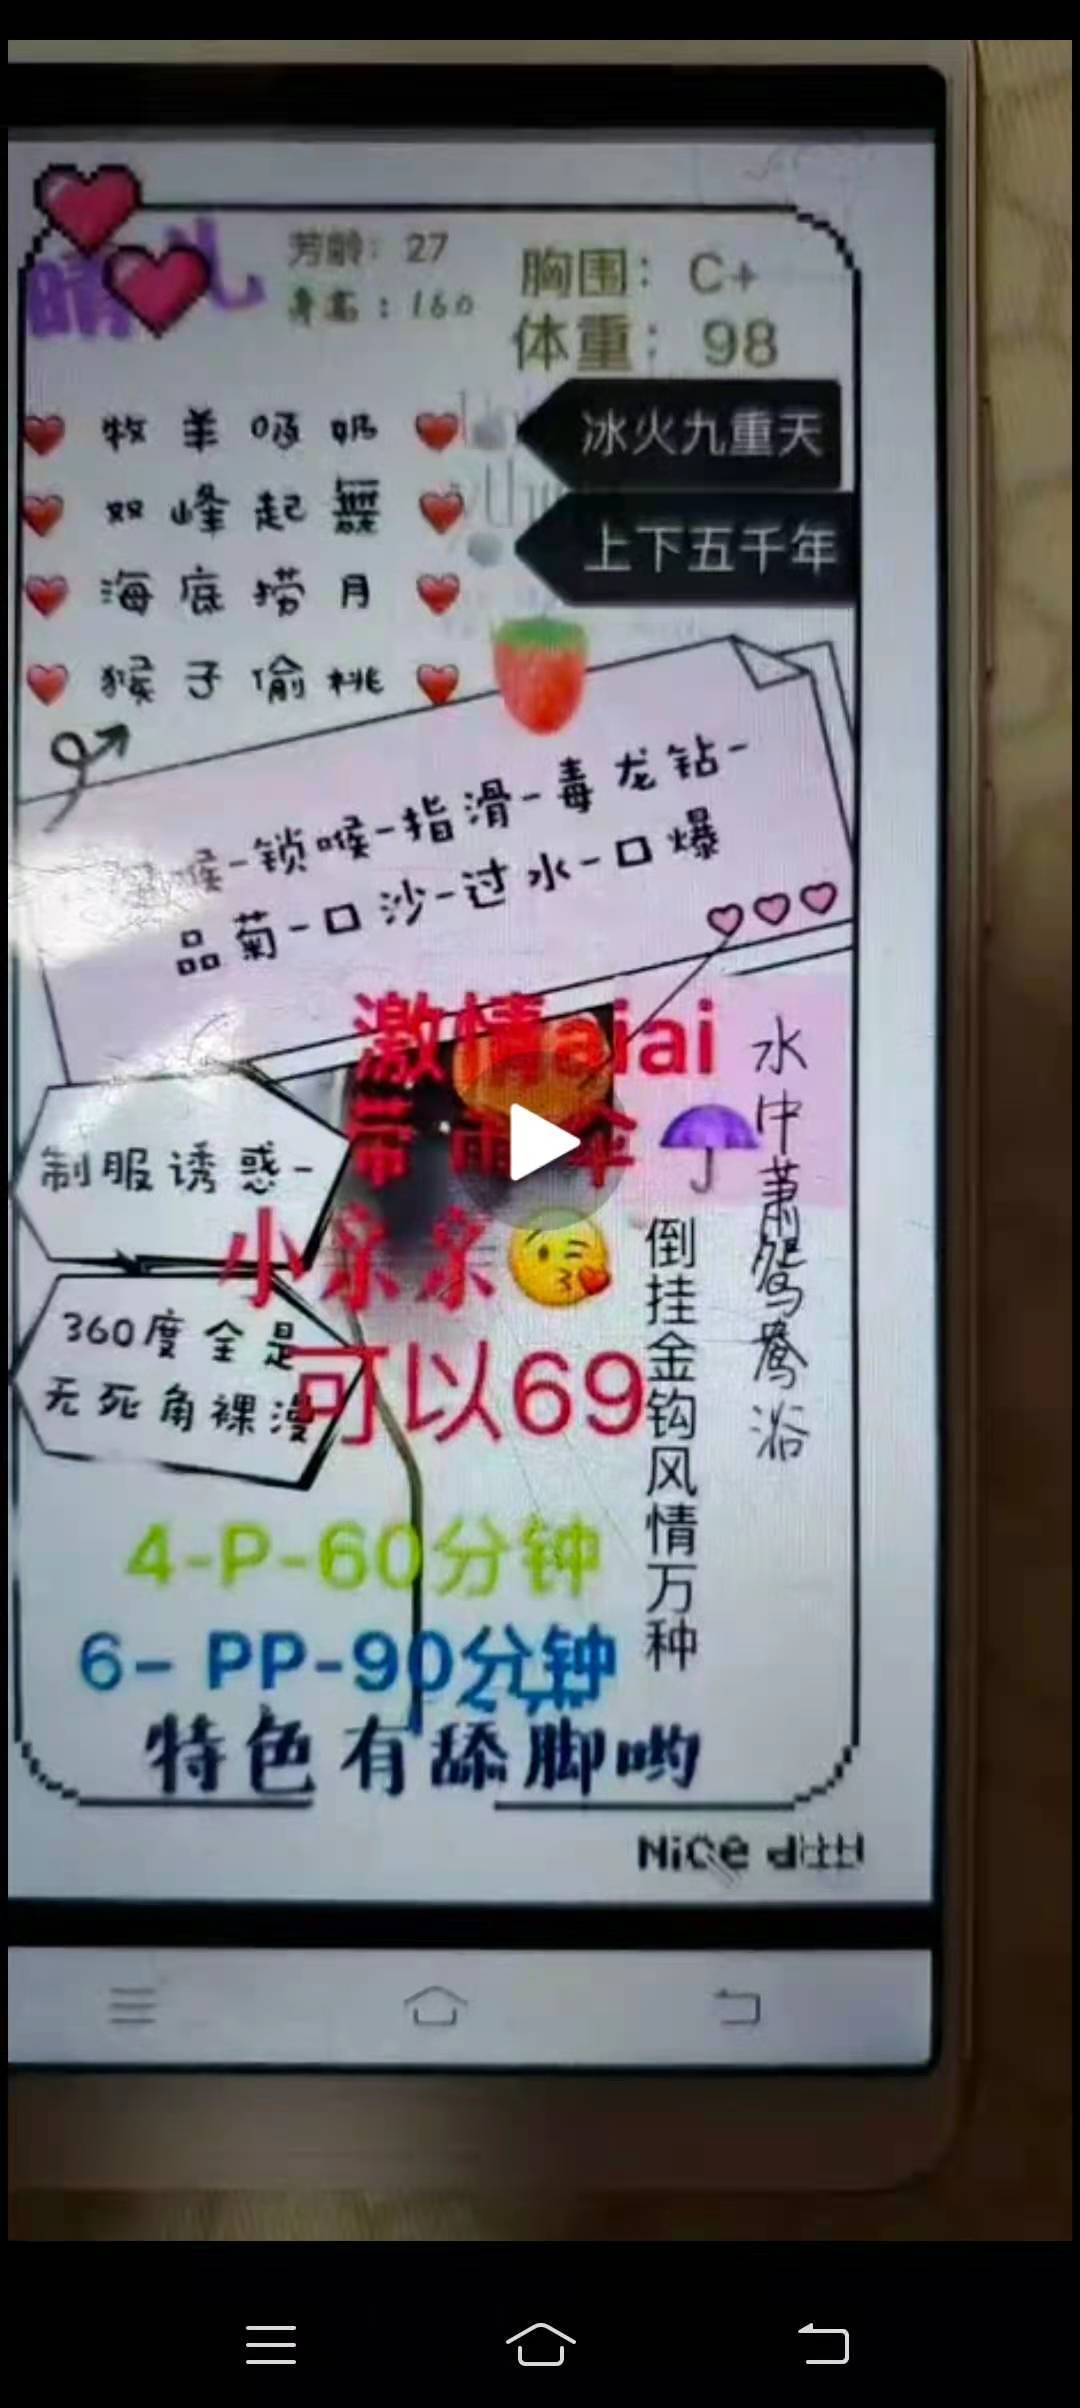 芳龄：27
身高：160
胸围：C+
体重：98
冰火九重天
双峰起舞
上下五千年
海底捞月
猴子偷桃
锁喉-指滑-毒龙钻-
品菊-口沙-过水-口爆
激情aiai
带雨伞
水中萧鸳鸯浴
制服诱惑-
小亲亲
倒挂金钩风情万种
360度全是
无死角裸漫
可以69
4-P-60分钟
6- PP-90分钟
特色有舔脚哟
Nice